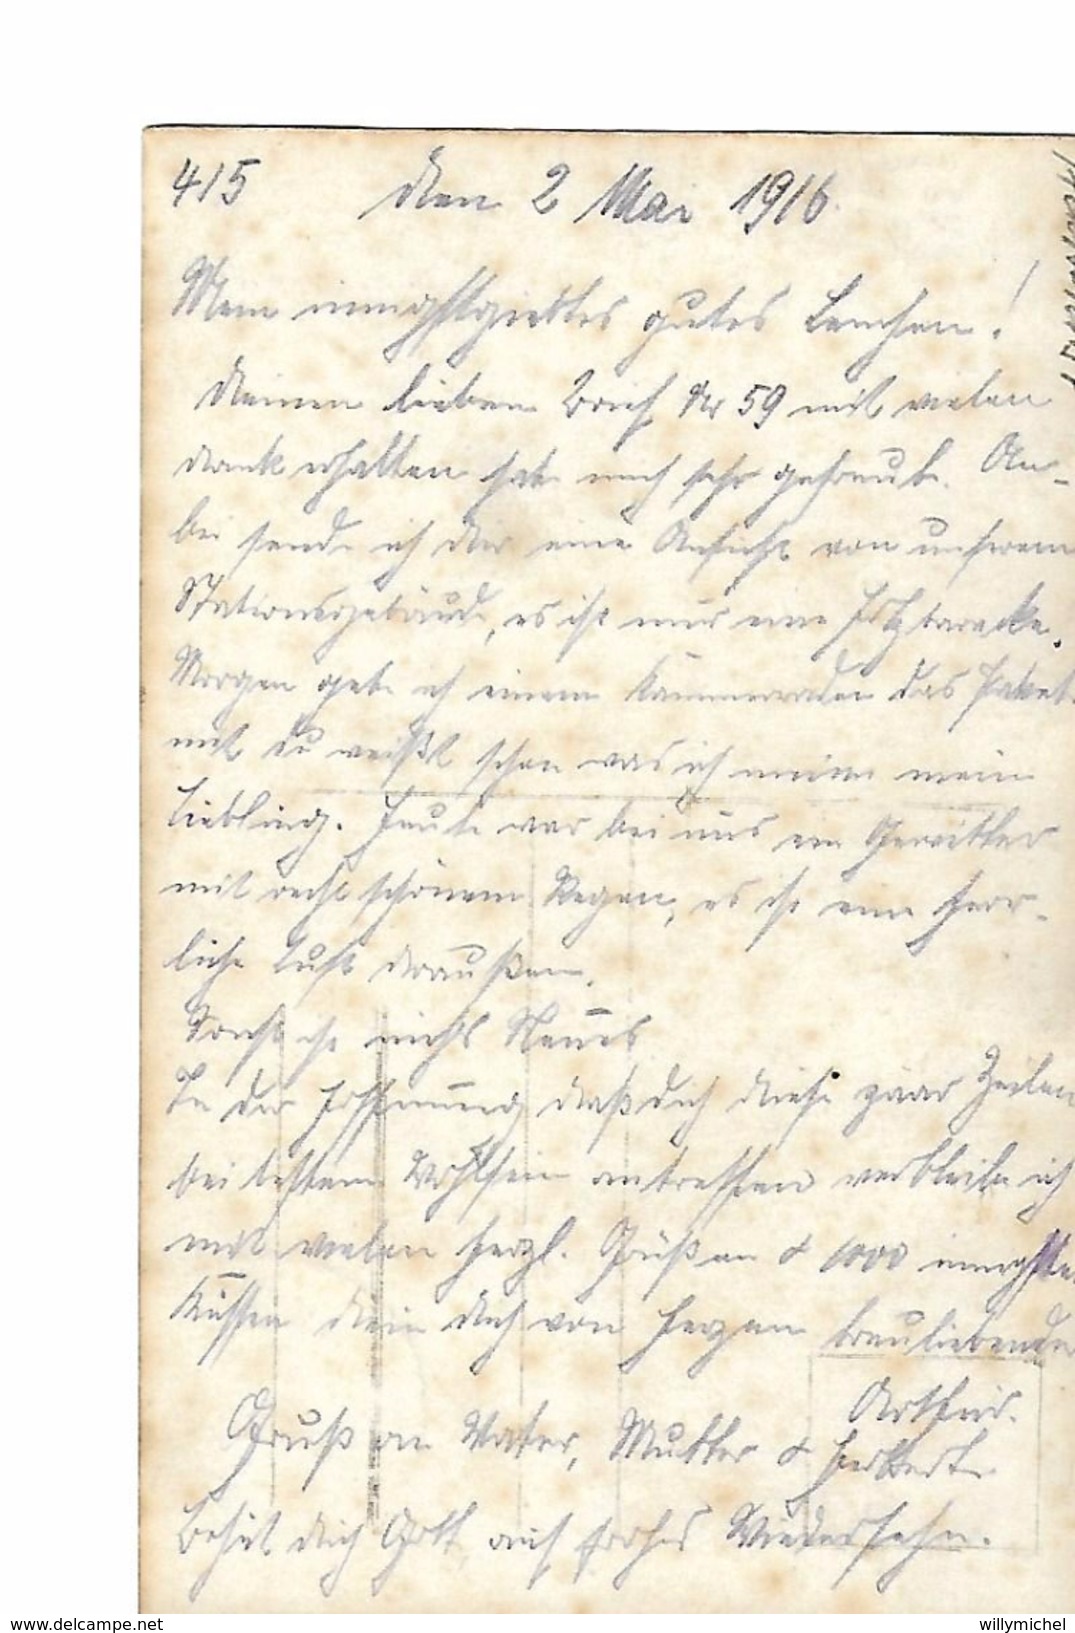 415 Den 2 Mai 1916.
Mein innigstgeliebtes gutes Lenchen!
Deinen lieben Brief Nr 59 mit vielen
Dank erhalten hat mich sehr gefreut. An-
bei sende ich dir eine Ansicht von unserem
Stationsgebäude, es ist nur eine Holzbaracke.
Morgen gebe ich einem Kammeraden das Paket
mit du weißt schon was ich meine mein
Liebling. Heute war bei uns ein Gewitter
mit recht schönem Regen, es ist eine herr-
liche Luft draußen.
Sonst ist nichts Neues
In der Hoffnung daß dich diese paar Zeilen
bei bestem Wohlsein antreffen verbleibe ich
mit vielen herzl. Grüßen & 1000 innigste
Küssen dein dich von Herzen treuliebender
Arthur.
Gruß an Vater, Mutter & Herbert.
Behüt dich Gott auf frohes Wiedersehn.
www.delcampe.net
willymichel